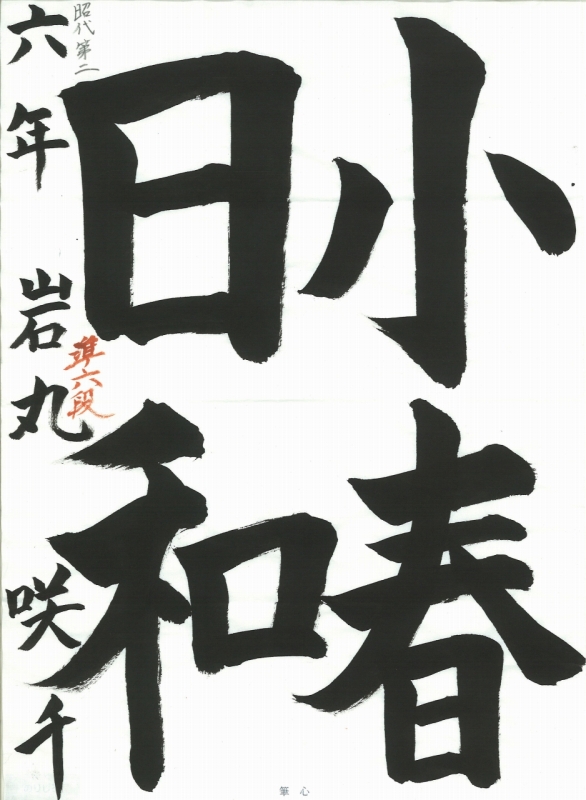 小春
日和
昭代第二
六年 岩丸咲千
準六段
心筆